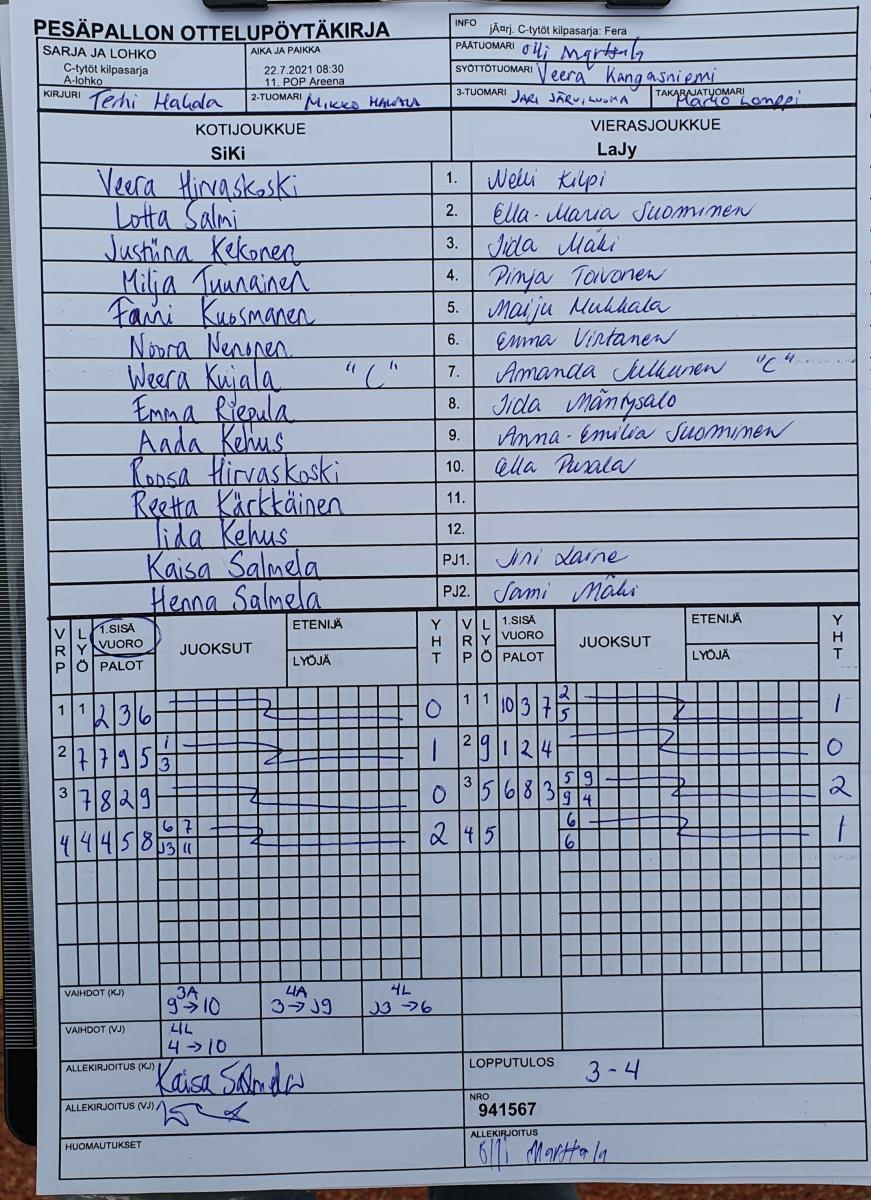 PESÄPALLON OTTELUPÖYTÄKIRJA
INFO jÃ¤rj. C-tytöt kilpasarja: Fera
SARJA JA LOHKO
C-tytöt kilpasarja
A-lohko
AIKA JA PAIKKA
22.7.2021 08:30
11. POP Areena
PÄÄTUOMARI Olli Marttala
SYÖTTÖTUOMARI Veera Kangasniemi
KIRJURI Terhi Hakala
2-TUOMARI MIKKO HAKALA
3-TUOMARI JARI JÄRVILUOMA
TAKARAJATUOMARI Marko Lamppi
KOTIJOUKKUE
SiKi
VIERASJOUKKUE
LaJy
Veera Hirvaskoski 1. Nelli Kilpi
Lotta Salmi 2. Ella-Maria Suominen
Justiina Kekonen 3. Iida Mäki
Milja Tuunainen 4. Pinja Toivonen
Fanni Kuosmanen 5. Maiju Mukkala
Noora Nenonen 6. Emma Virtanen
Weera Kujala "C" 7. Amanda Julkunen "C"
Emma Riepula 8. Iida Mäntysalo
Aada Kehus 9. Anna-Emilia Suominen
Roosa Hirvaskoski 10. Ella Pusala
Reetta Kärkkäinen 11.
Iida Kehus 12.
Kaisa Salmela PJ1. Jini Laine
Henna Salmela PJ2. Sami Mäki
VRP LYÖ 1.SISÄ VUORO PALOT JUOKSUT ETENIJÄ LYÖJÄ YHT VRP LYÖ 1.SISÄ VUORO PALOT JUOKSUT ETENIJÄ LYÖJÄ YHT
1 1 2 3 6 0 1 1 10 3 7 2 5 1
2 7 7 9 5 1 3 1 2 9 1 2 4 0
3 7 8 2 9 0 3 5 6 8 3 5 9 9 4 2
4 4 4 5 8 6 7 J3 11 2 4 5 6 6 1
VAIHDOT (KJ) 3A 9→10 4A 3→J9 4L J3→6
VAIHDOT (VJ) 4L 4→10
ALLEKIRJOITUS (KJ) Kaisa Salmela
LOPPUTULOS 3-4
ALLEKIRJOITUS (VJ)
NRO
941567
HUOMAUTUKSET
ALLEKIRJOITUS
Olli Marttala